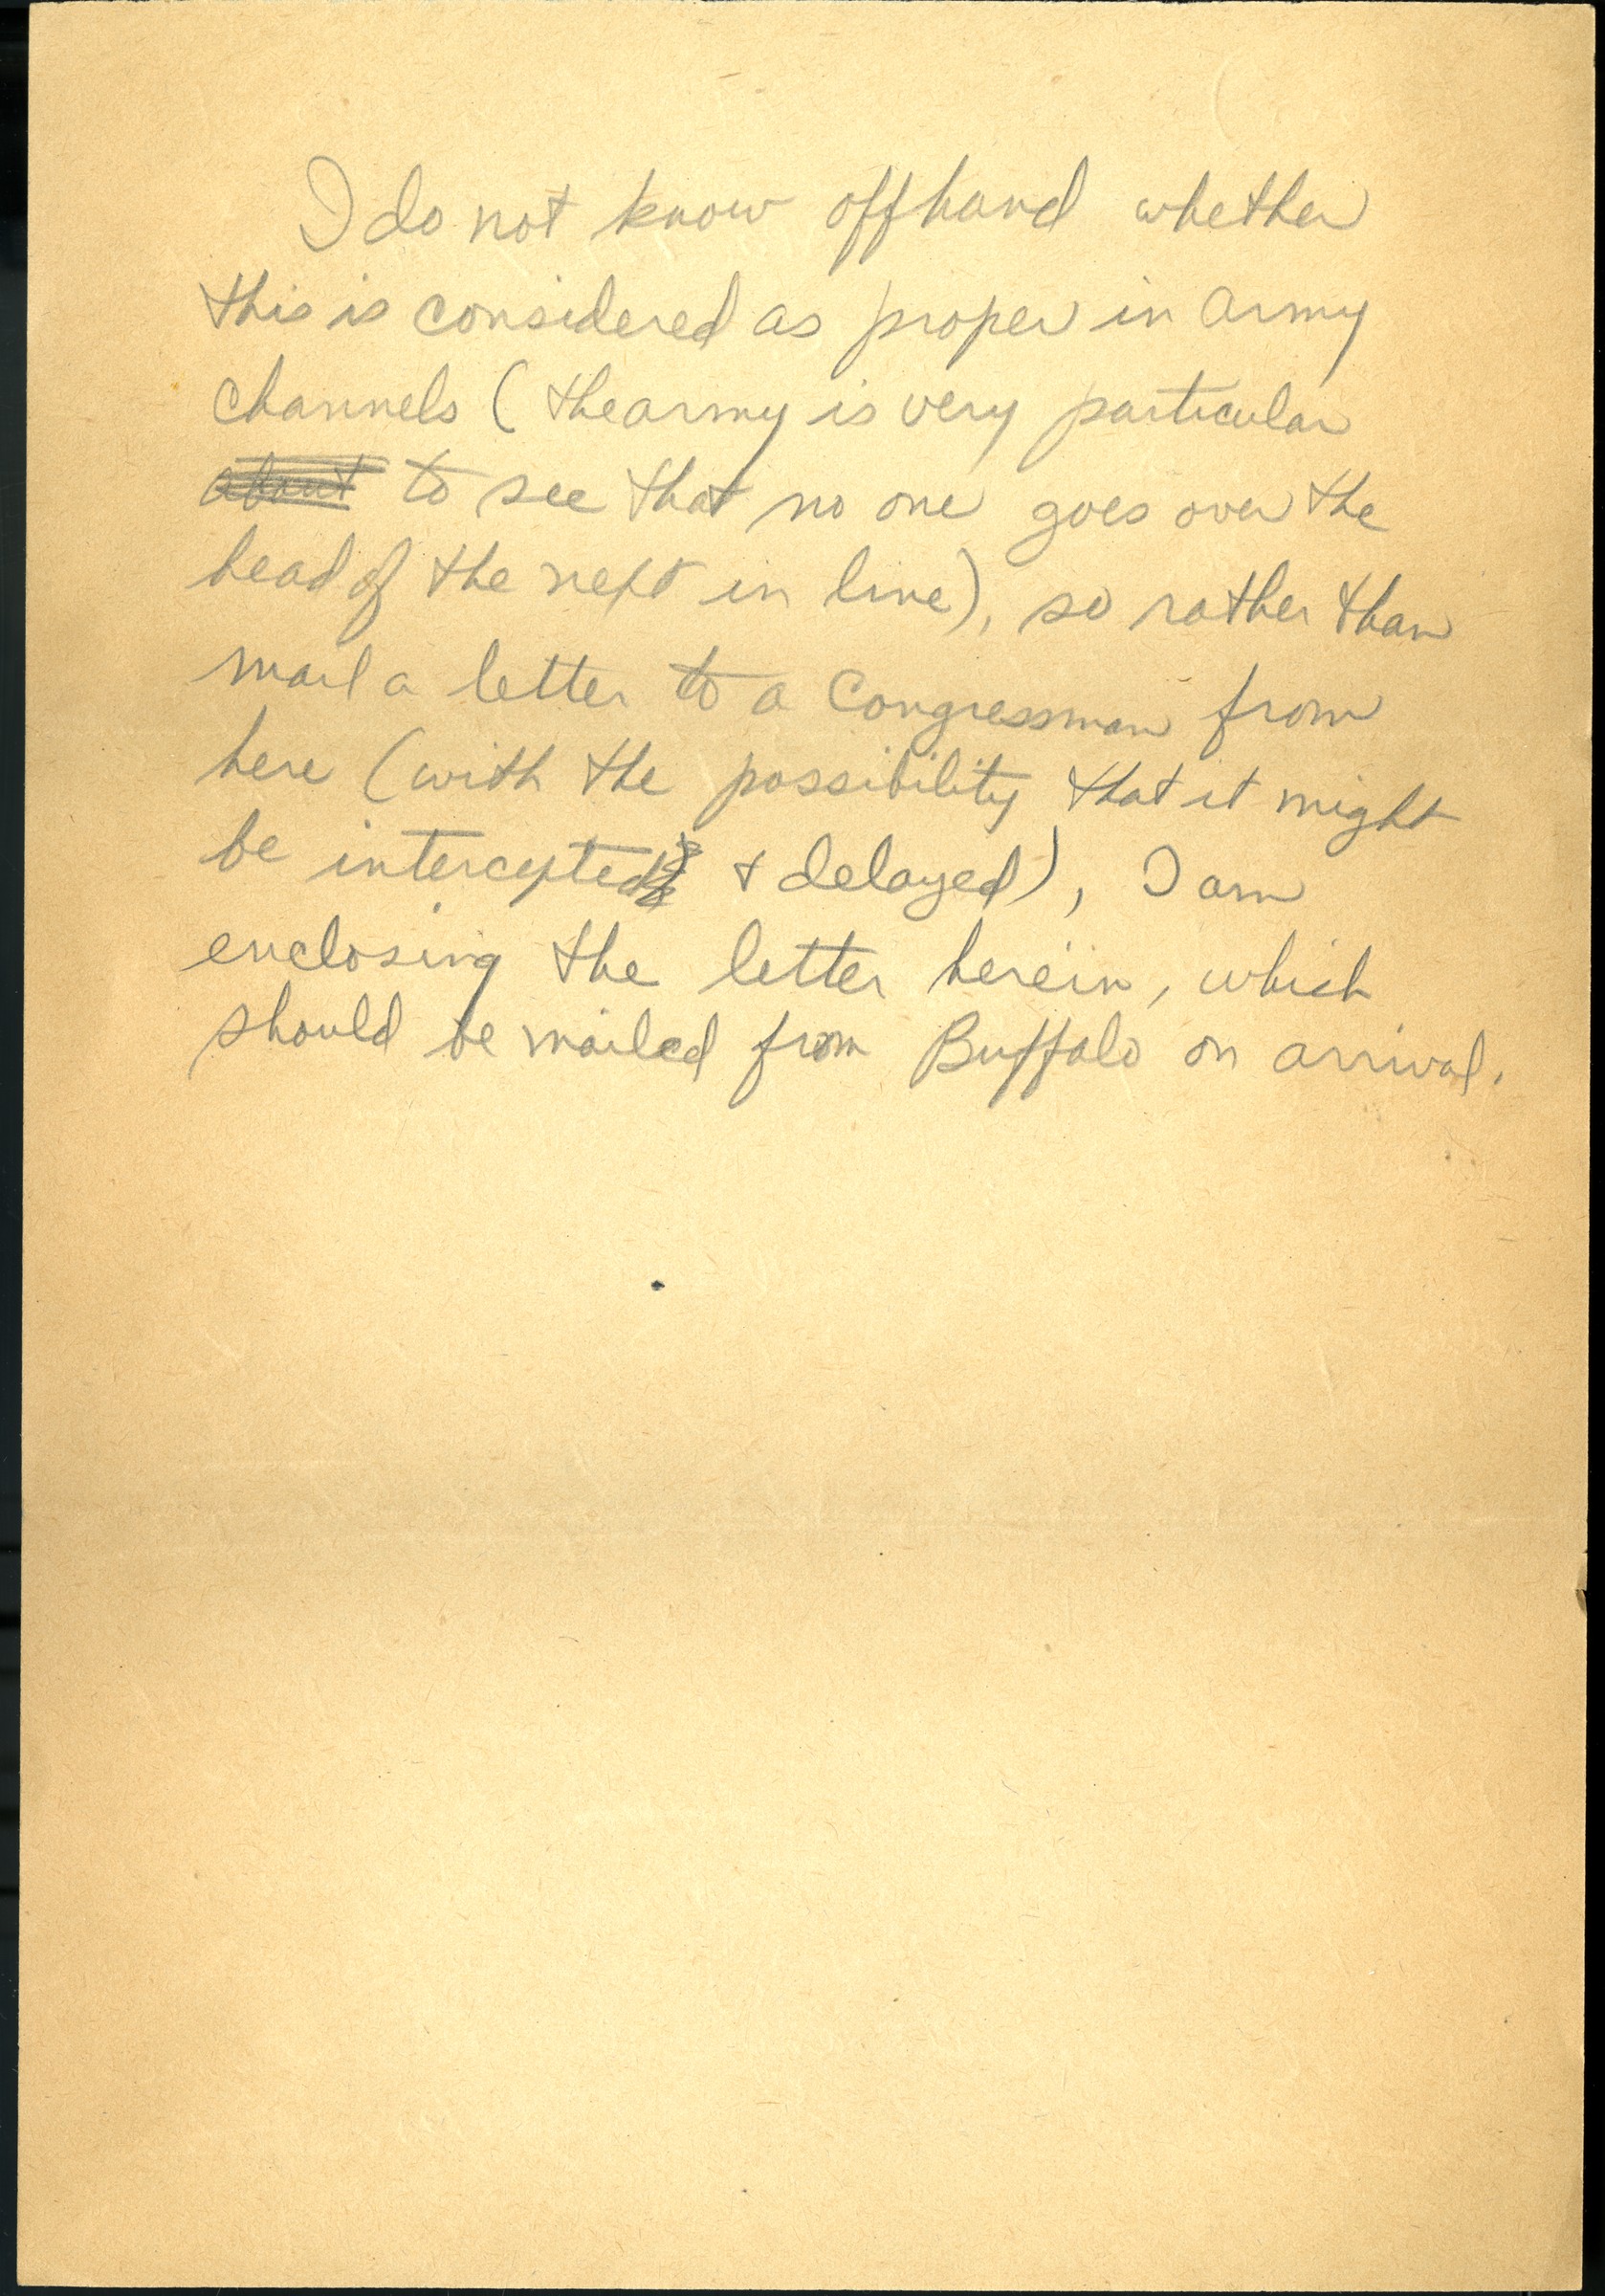 I do not know offhand whether
this is considered as proper in Army
channels (the army is very particular
about to see that no one goes over the
head of the next in line), so rather than
mail a letter to a Congressman from
here (with the possibility that it might
be intercepted & delayed), I am
enclosing the letter herein, which
should be mailed from Buffalo on arrival.